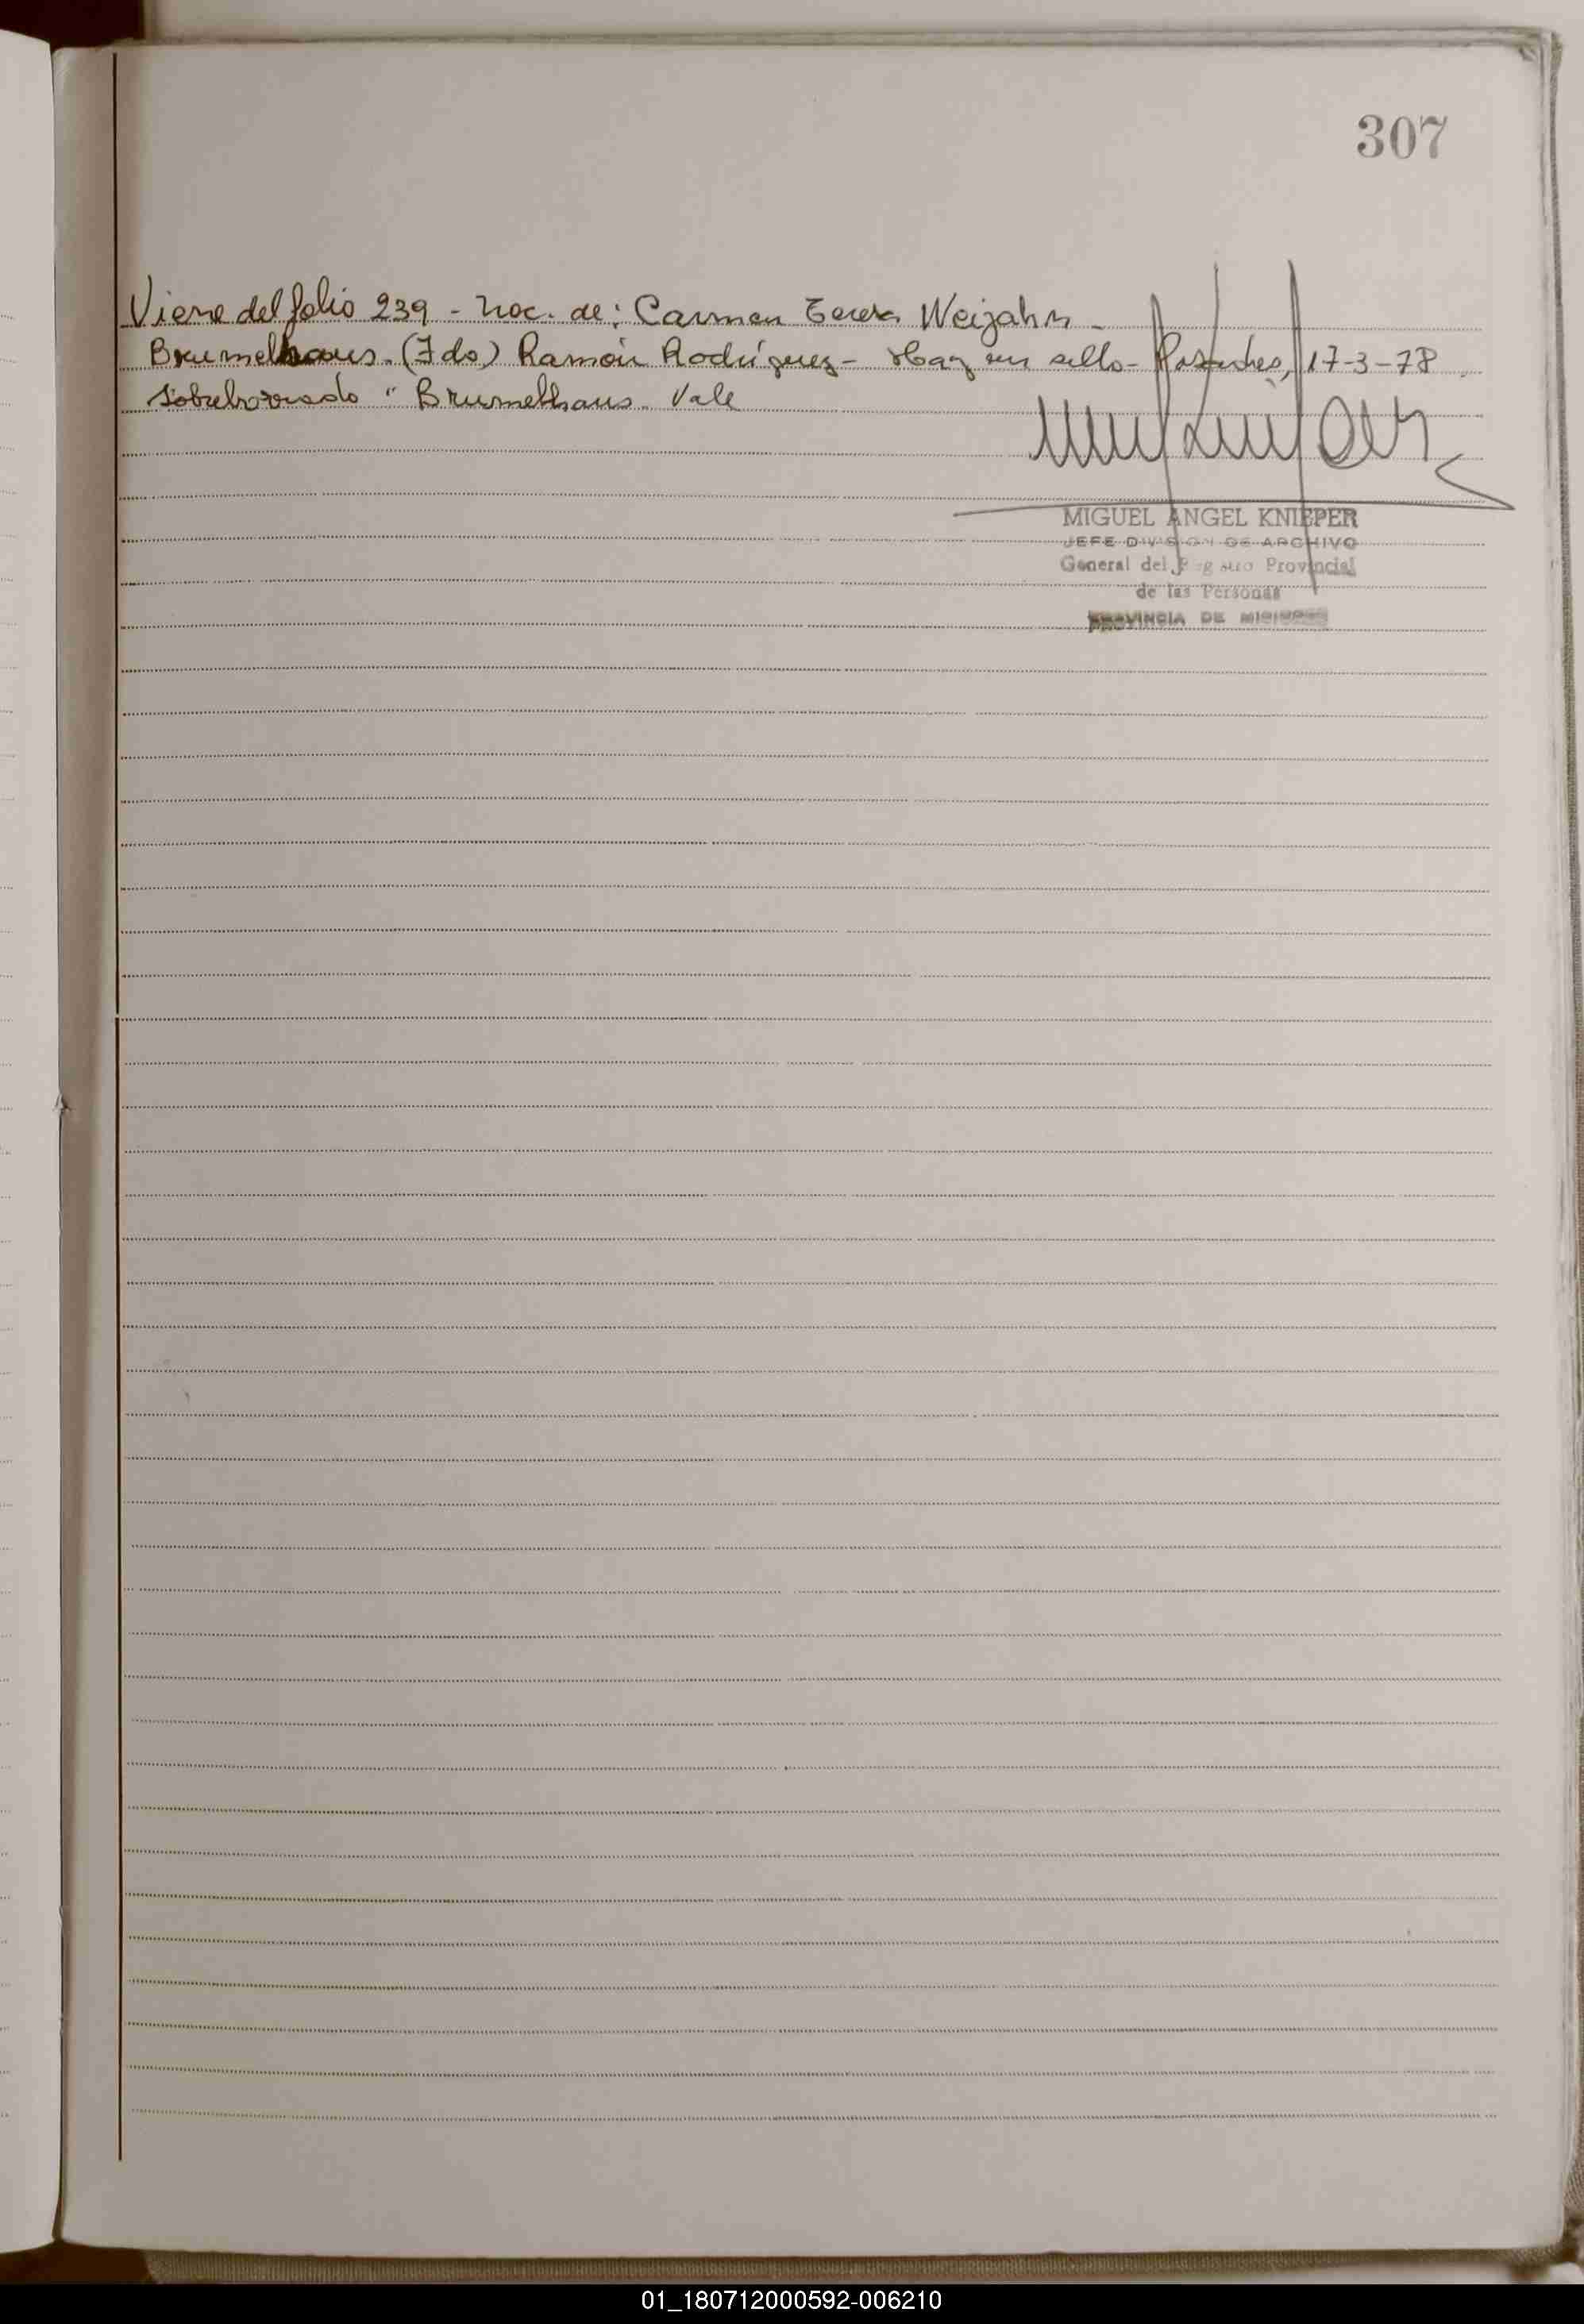 307
Viene del folio 239 - nac. de: Carmen Teresa Weijahn -
Brumelhaus. (Fdo) Ramón Rodríguez - Hay un sello - Posadas, 17-3-78
Sobreborrado " Brumelhaus. Vale
MIGUEL ANGEL KNIEPER
JEFE DIVISION DE ARCHIVO
General del Registro Provincial
de las Personas
PROVINCIA DE MISIONES
01_180712000592-006210